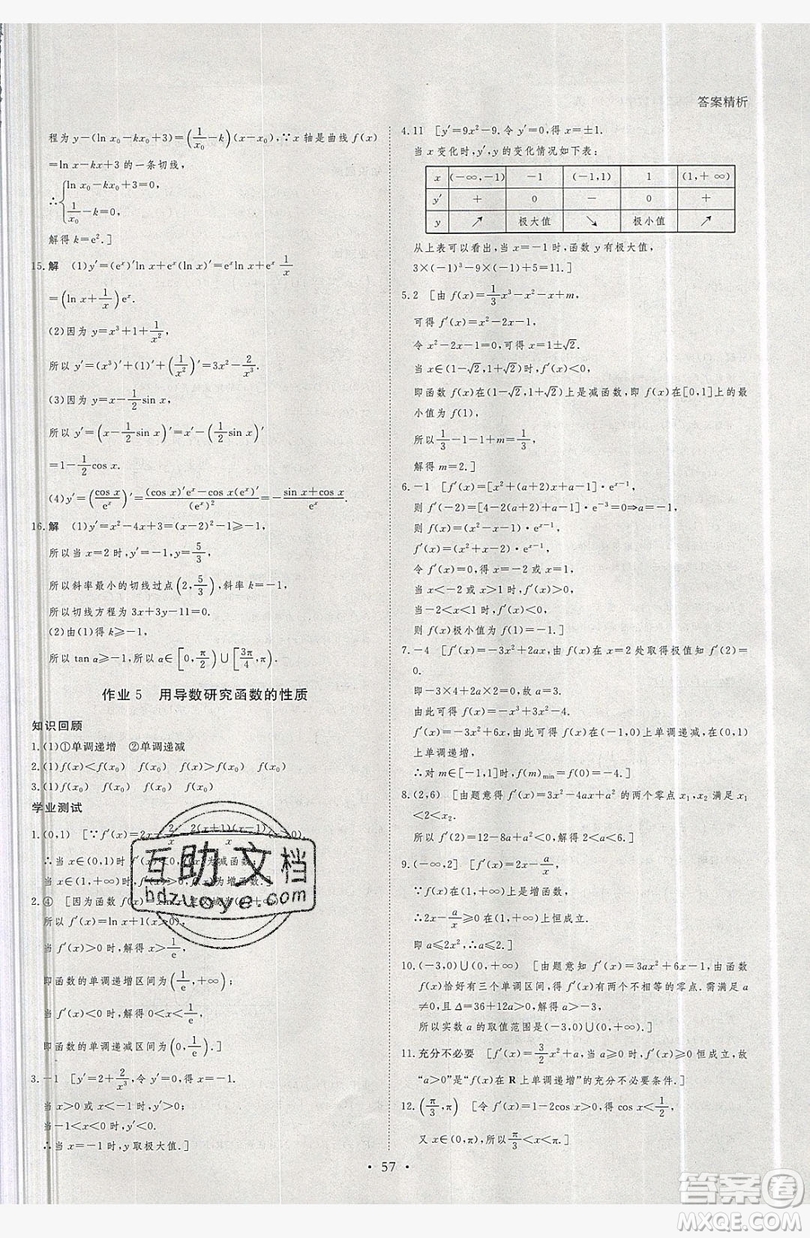 答案精析
程为y-(ln x₀-kx₀+3)=(1/x₀-k)(x-x₀),∵x轴是曲线f(x)
=ln x-kx+3的一条切线,
∴{ln x₀-kx₀+3=0,
1/x₀-k=0,
解得k=e².]
15.解 (1)y′=(eˣ)′ln x+eˣ(ln x)′=eˣln x+eˣ 1/x
=(ln x+1/x)eˣ.
(2)因为y=x³+1+1/x²,
所以y′=(x³)′+(1)′+(1/x²)′=3x²-2/x³.
(3)因为y=x-1/2 sin x,
所以y′=x′-(1/2 sin x)′
=1-1/2 cos x.
(4)y′=(cos x/eˣ)′=((cos x)′eˣ-cos x(eˣ)′)/(eˣ)²=-(sin x+cos x)/eˣ
16.解 (1)y′=x²-4x+3=(x-2)²-1≥-1,
所以当x=2时,y′=-1,y=5/3,
所以斜率最小的切线过点(2,5/3),斜率k=-1,
所以切线方程为3x+3y-11=0.
(2)由(1)得k≥-1,
所以tan α≥-1,所以α∈[0,π/2)∪[3π/4,π).
作业5 用导数研究函数的性质
知识回顾
1.(1)①单调递增 ②单调递减
2.(1)f(x)<f(x₀) f(x)>f(x₀) (2)f(x₀) f(x₀)
3.(1)f(x)≤f(x₀) f(x)≥f(x₀)
学业测试
1.(0,1) [∵f′(x)=2x-2/x=2(x+1)(x-1)/x(x>0).
∴当x∈(0,1)时,f′(x)<0,f(x)为减函数;
当x∈
2.④ [因为函数f(x)
所以f′(x)=ln x+1(x>0),
当f′(x)>0时,解得x>1/e,
即函数的单调递增区间为(1/e,+∞);
当f′(x)<0时,解得0<x<1/e,
即函数的单调递减区间为(0,1/e).]
3.-1 [y′=2+2/x³,令y′=0,得x=-1.
当x>0或x<-1时,y′>0;
当-1<x<0时,y′<0.
∴当x=-1时,y取极大值.]
4.11 [y′=9x²-9.令y′=0,得x=±1.
当x变化时,y′,y的变化情况如下表:
x (-∞,-1) -1 (-1,1) 1 (1,+∞)
y′ + 0 - 0 +
y ↗ 极大值 ↘ 极小值 ↗
从上表可以看出,当x=-1时,函数y有极大值
3×(-1)³-9×(-1)+5=11.]
5.2 [由f(x)=1/3x³-x²-x+m,
可得f′(x)=x²-2x-1,
令x²-2x-1=0,可得x=1±√2.
当x∈(1-√2,1+√2)时,f′(x)<0,
即函数f(x)在(1-√2,1+√2)上是减函数,即f(x)在[0,1]上的最
小值为f(1),
所以1/3-1-1+m=1/3,
解得m=2.]
6.-1 [f′(x)=[x²+(a+2)x+a-1]·eˣ⁻¹,
则f′(-2)=[4-2(a+2)+a-1]·e⁻³=0⇒a=-1,
则f(x)=(x²-x-1)·eˣ⁻¹,f′(x)=(x²+x-2)·eˣ⁻¹,
令f′(x)=0,得x=-2或x=1,
当x<-2或x>1时,f′(x)>0,
当-2<x<1时,f′(x)<0,
则f(x)极小值为f(1)=-1.]
7.-4 [f′(x)=-3x²+2ax,由f(x)在x=2处取得极值知f′(2)=
0.
即-3×4+2a×2=0,故a=3.
由此可得f(x)=-x³+3x²-4.
f′(x)=-3x²+6x.
由此可得f(x)在(-1,0)上单调递减,在(0,1)
上单调递增,
∴对m∈[-1,1]时,f(m)min=f(0)=-4.]
8.(2,6) [由题意可知f′(x)=3x²-4ax+a²的两个零点x₁,x₂满足
x₁<2<x₂,
所以f′(2)=12-8a+a²<0,解得2<a<6.]
9.(-∞,2] [由题意得f′(x)=2x-a/x,
∵f(x)在(1,+∞)上是增函数,
∴2x-a/x≥0在(1,+∞)上恒成立,
即a≤2x²,所以a≤2.]
10.(-3,0)∪(0,+∞) [由题意知f′(x)=3ax²+6x-1,由函数
f(x)恰好有三个单调区间,得f′(x)有两个不相等的零点,需满足a
≠0,且Δ=36+12a>0,解得a>-3,
所以实数a的取值范围是(-3,0)∪(0,+∞).]
11.充分不必要 [f′(x)=3/2x²+a,当a>0时,f′(x)>0恒成立,故
“a>0”是“f(x)在R上单调递增”的充分不必要条件.]
12.(π/3,π) [令f′(x)=1-2cos x>0,则cos x<1/2,
又x∈(0,π),所以π/3<x<π.
• 57 •
互助文档
bdzuoye.com
答案圈
MXQE.COM